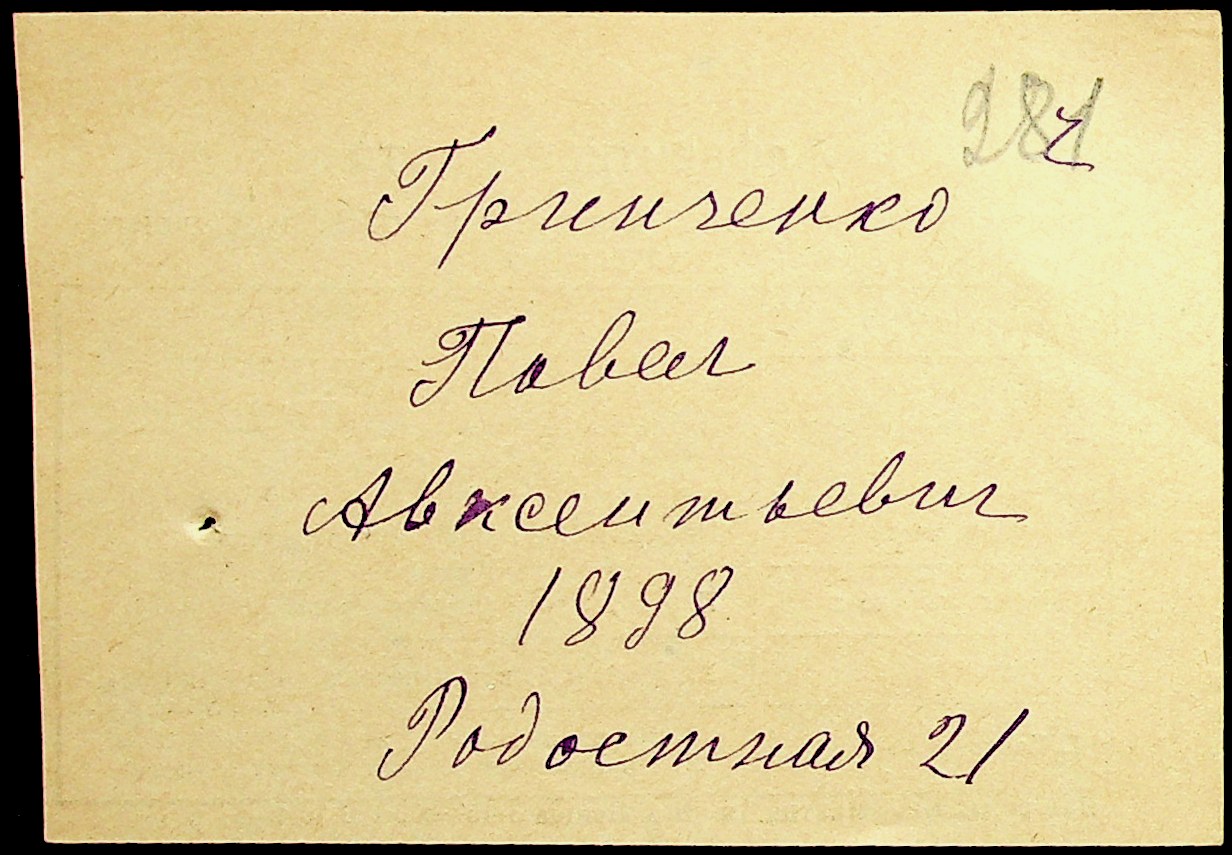 281
Гринченко
Павел
Авксентьевич
1898
Радостная 21